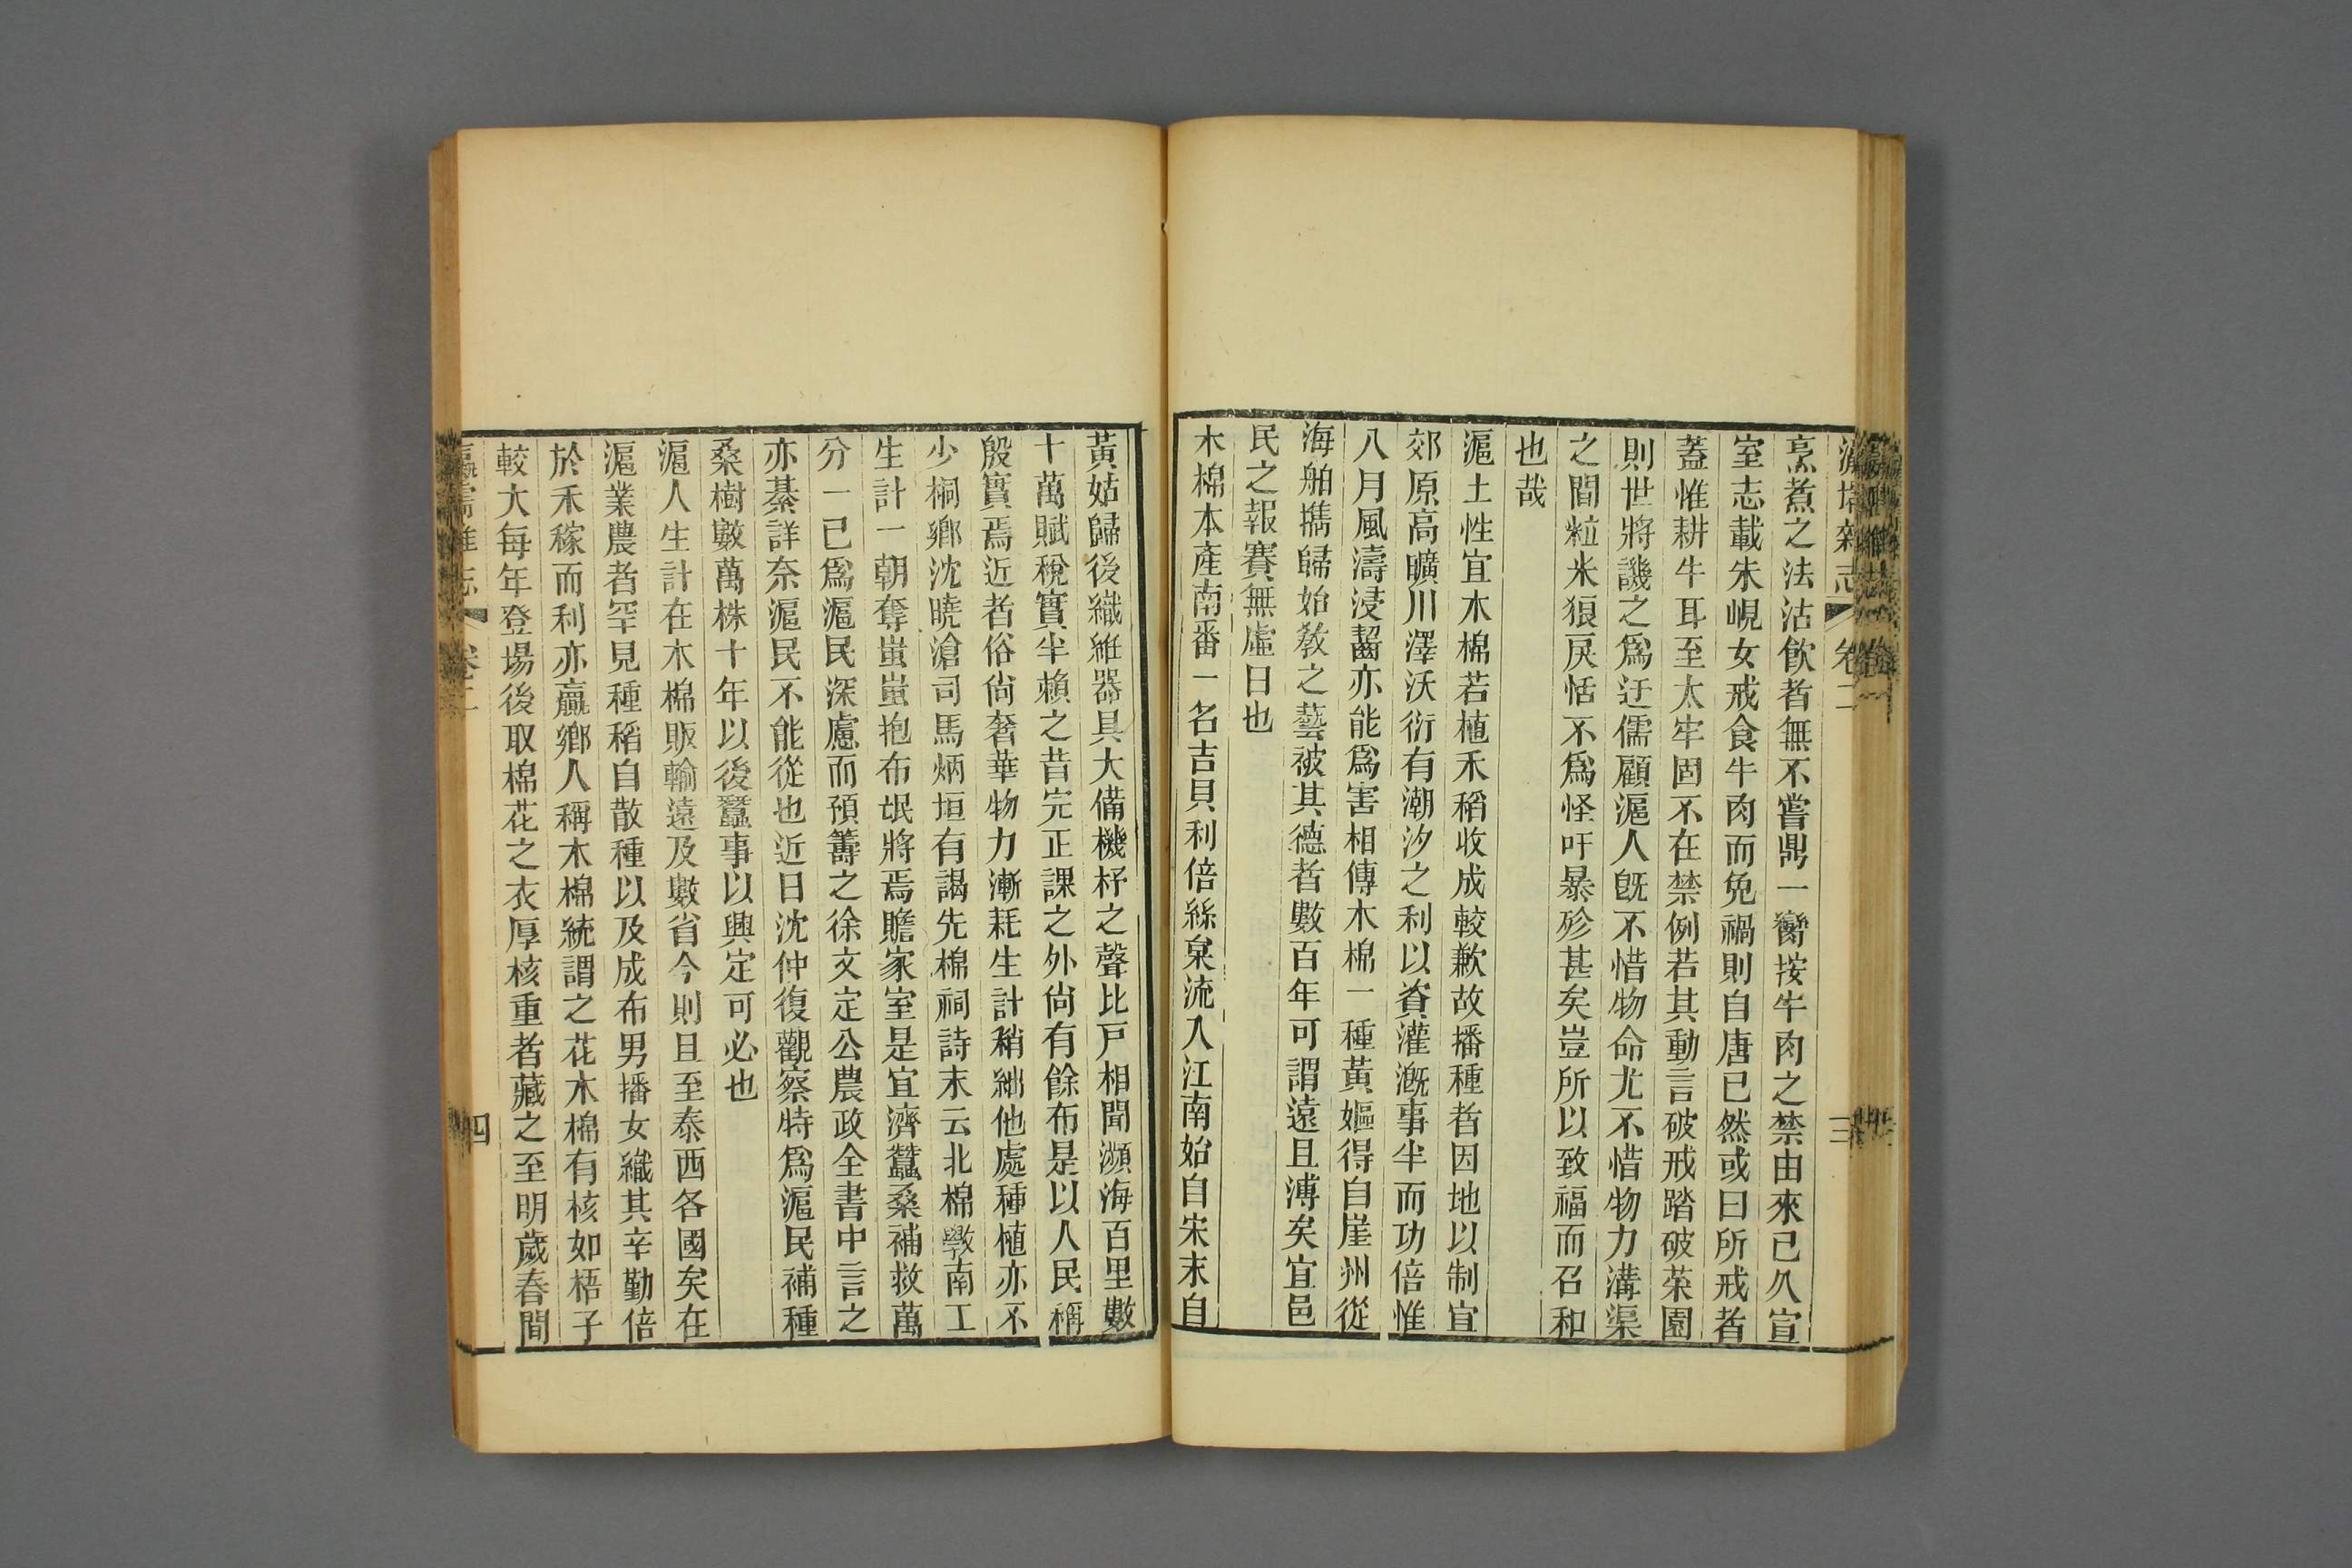 瀛壖雜志 卷二 三
烹煮之法沽飮者無不嘗鼎一臠按牛肉之禁由來已久宣
室志載朱峴女戒食牛肉而免禍則自唐已然或曰所戒者
蓋惟耕牛耳至太牢固不在禁例若其動言破戒踏破菜園
則世將譏之爲迂儒顧滬人旣不惜物命尤不惜物力溝渠
之間粒米狼戾恬不爲怪吁暴殄甚矣豈所以致福而召和
也哉
滬土性宜木棉若植禾稻收成較歉故播種者因地以制宜
郊原高曠川澤沃衍有潮汐之利以資灌漑事半而功倍惟
八月風濤浸齧亦能爲害相傳木棉一種黃嫗得自崖州從
海舶攜歸始敎之藝被其德者數百年可謂遠且溥矣宜邑
民之報賽無虛日也
木棉本產南番一名吉貝利倍絲枲流入江南始自宋末自
黃姑歸後織紝器具大備機杼之聲比戸相聞瀕海百里數
十萬賦稅實半賴之昔完正課之外尙有餘布是以人民稱
殷實焉近者俗尙奢華物力漸耗生計稍絀他處種植亦不
少桐鄉沈曉滄司馬炳垣有謁先棉祠詩末云北棉斆南工
生計一朝奪蚩蚩抱布氓將焉贍家室是宜濟蠶桑補救萬
分一已爲滬民深慮而預籌之徐文定公農政全書中言之
亦綦詳奈滬民不能從也近日沈仲復觀察特爲滬民補種
桑樹數萬株十年以後蠶事以興定可必也
滬人生計在木棉販輸遠及數省今則且至泰西各國矣在
滬業農者罕見種稻自散種以及成布男播女織其辛勤倍
於禾稼而利亦贏鄉人稱木棉統謂之花木棉有核如梧子
較大每年登場後取棉花之衣厚核重者藏之至明歲春間
瀛壖雜志 卷二 四